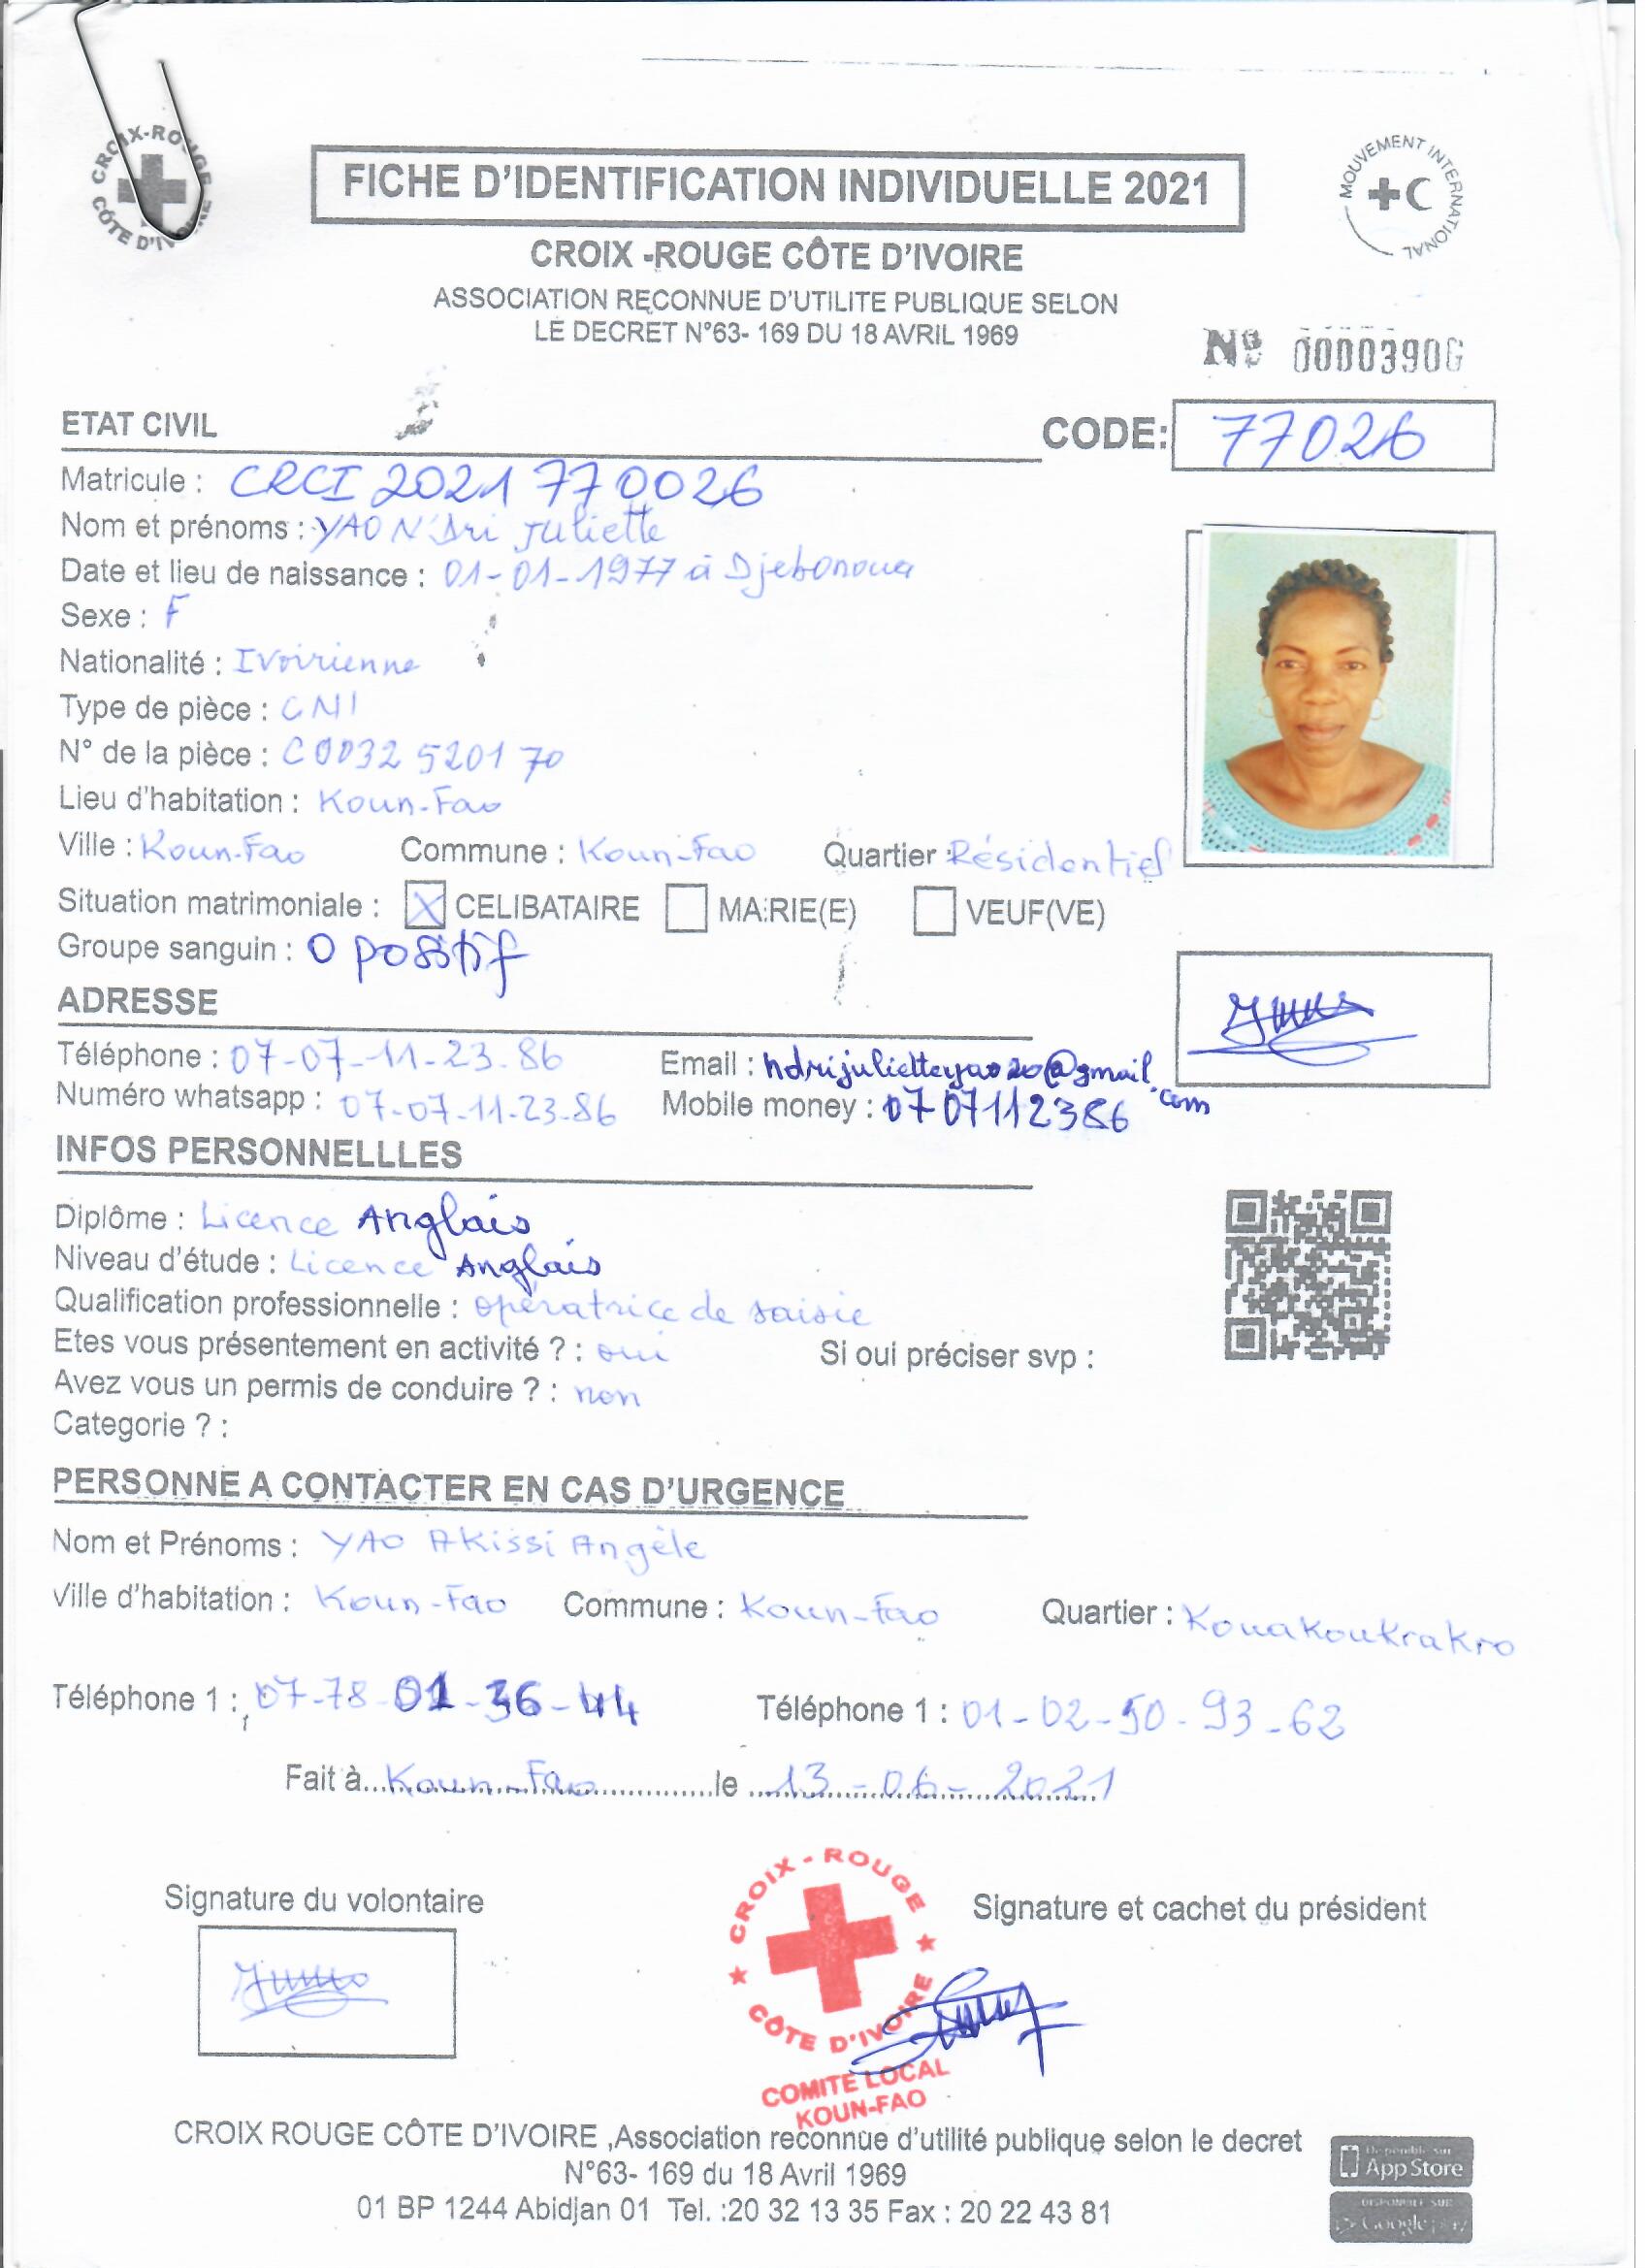 CROIX-ROUGE
CÔTE D'IVOIRE
MOUVEMENT INTERNATIONAL
FICHE D'IDENTIFICATION INDIVIDUELLE 2021
CROIX -ROUGE CÔTE D'IVOIRE
ASSOCIATION RECONNUE D'UTILITE PUBLIQUE SELON
LE DECRET N°63- 169 DU 18 AVRIL 1969
Nº 0000390G
ETAT CIVIL
CODE: 77026
Matricule : CRCI 2021 770026
Nom et prénoms : YAO N'Dri Juliette
Date et lieu de naissance : 01-01-1977 à Djebonoua
Sexe : F
Nationalité : Ivoirienne
Type de pièce : CNI
N° de la pièce : C0032 5201 70
Lieu d'habitation : Koun-Fao
Ville : Koun-Fao Commune : Koun-Fao Quartier : Résidentiel
Situation matrimoniale : X CELIBATAIRE MARIE(E) VEUF(VE)
Groupe sanguin : O positif
ADRESSE
Téléphone : 07-07-11-23-86 Email : ndrijulietteyao20@gmail.com
Numéro whatsapp : 07-07-11-23-86 Mobile money : 0707112386
INFOS PERSONNELLLES
Diplôme : Licence Anglais
Niveau d'étude : Licence Anglais
Qualification professionnelle : opératrice de saisie
Etes vous présentement en activité ? : oui Si oui préciser svp :
Avez vous un permis de conduire ? : non
Categorie ? :
PERSONNE A CONTACTER EN CAS D'URGENCE
Nom et Prénoms : YAO AKissi Angèle
Ville d'habitation : Koun-Fao Commune : Koun-Fao Quartier : Kouakoukrakro
Téléphone 1 : 07-78-01-36-44 Téléphone 1 : 01-02-50-93-62
Fait à Koun-Fao le 13-06-2021
Signature du volontaire
Signature et cachet du président
CROIX-ROUGE
CÔTE D'IVOIRE
COMITE LOCAL
KOUN-FAO
CROIX ROUGE CÔTE D'IVOIRE ,Association reconnue d'utilité publique selon le decret
N°63- 169 du 18 Avril 1969
01 BP 1244 Abidjan 01 Tel. :20 32 13 35 Fax : 20 22 43 81
Disponible sur
App Store
DISPONIBLE SUR
Google play